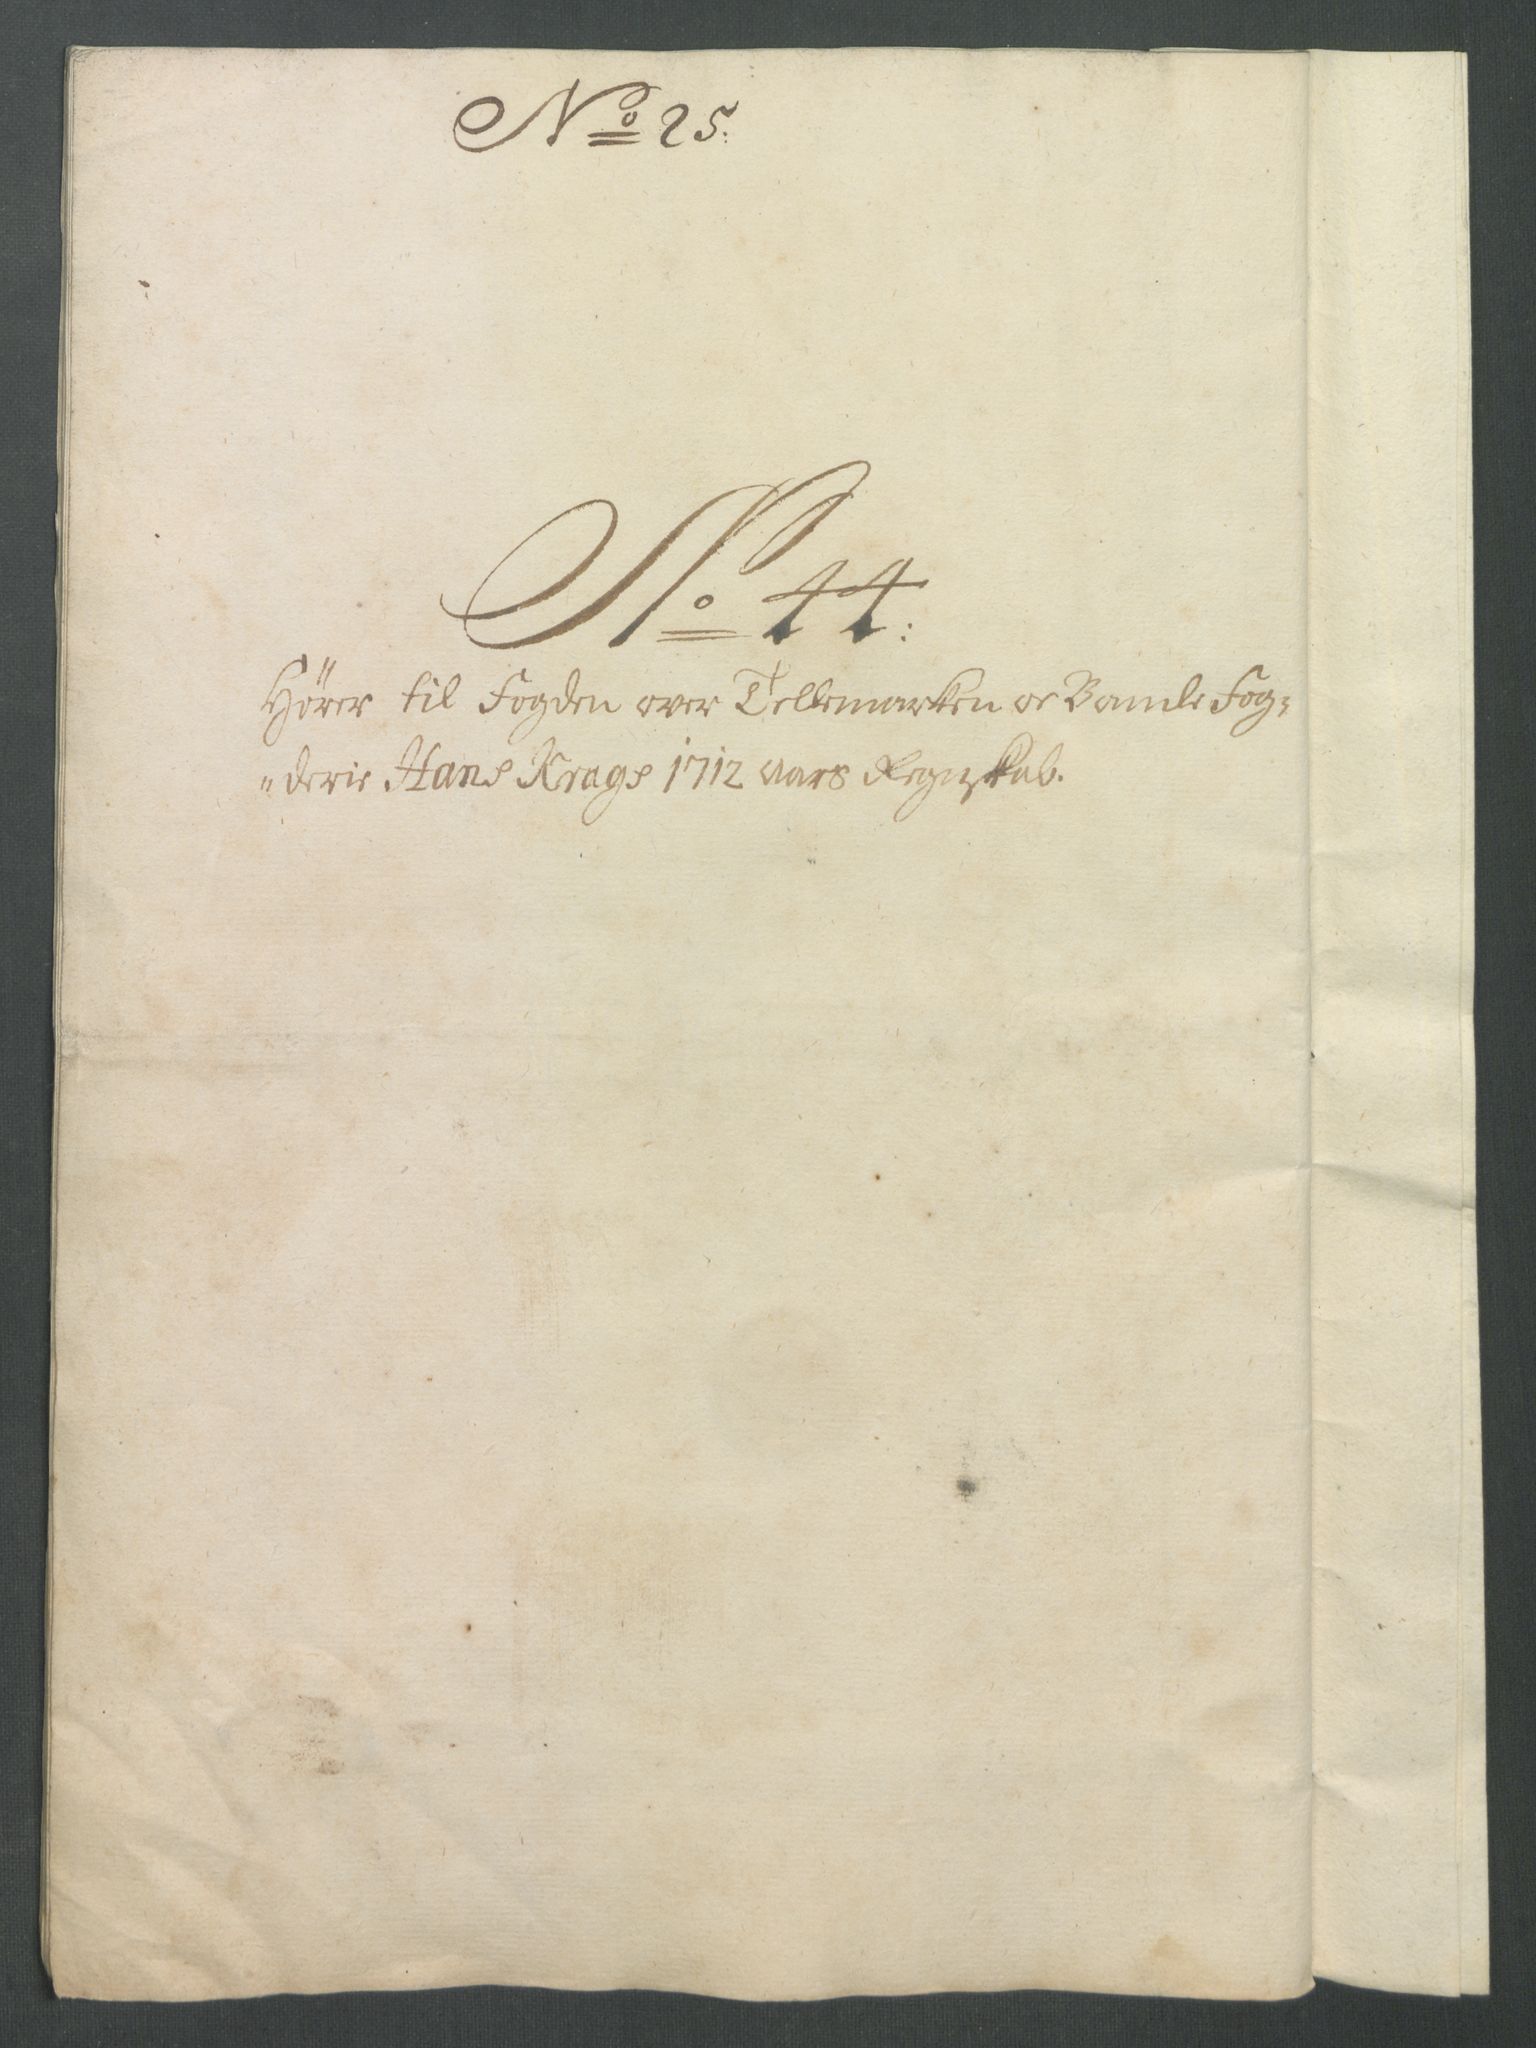 No 25:
No 44:
Hörer til Fogden over Tellemarken oc Bamle Fog=
"derie Hans Krags 1712 aars Regnskab.